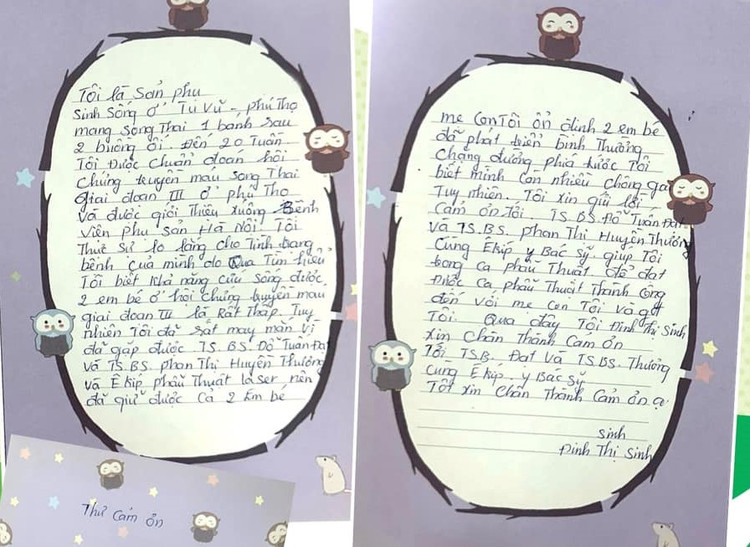 Tôi là Sản phụ
Sinh Sống ở Tu Vũ - Phú Thọ
mang Song Thai 1 bánh sau
2 buồng ối. Đến 20 Tuần
Tôi Được Chuẩn đoán hôi
Chứng truyền máu song Thai
giai đoạn III ở phú Thọ
và được giới Thiệu xuống Bệnh
Viện phụ sản Hà Nôi. Tôi
Thực Sự lo lắng cho Tình trạng
bệnh của mình do Qua Tìm hiểu
Tôi biết khả năng cứu sống được
2 em bé ở hôi chứng truyền máu
giai đoạn III là Rất Thấp. Tuy
nhiên Tôi đã rất may mắn vì
đã gặp được TS.BS. Đỗ Tuấn Đạt
Và TS.BS. phan Thị Huyền Thương
Và Ê kíp phẫu Thuật laser nên
đã giữ được Cả 2 Em bé
Thư Cám ơn
mẹ con Tôi ổn định 2 em bé
đã phát triển bình Thường
Chặng đường phía trước Tôi
biết mình Còn nhiều chông gai
Tuy nhiên. Tôi xin gửi lời
Cảm ơn Tới TS.BS. Đỗ Tuấn Đạt
Và TS.B.S. phan Thị Huyền Thương
Cùng Êkíp y Bác Sỹ giúp Tôi
trong Ca phẫu Thuật để đạt
Được Ca phẫu Thuật Thành Công
đến Với mẹ Con Tôi Và gđ
Tôi. Qua đây Tôi Đinh Thị Sinh
xin Chân Thành Cảm ơn
Tới TSB. Đạt Và TS.BS. Thương
Cùng Êkíp y Bác Sỹ
Tôi xin Chân Thành Cảm ơn ạ
Sinh
Đinh Thị Sinh